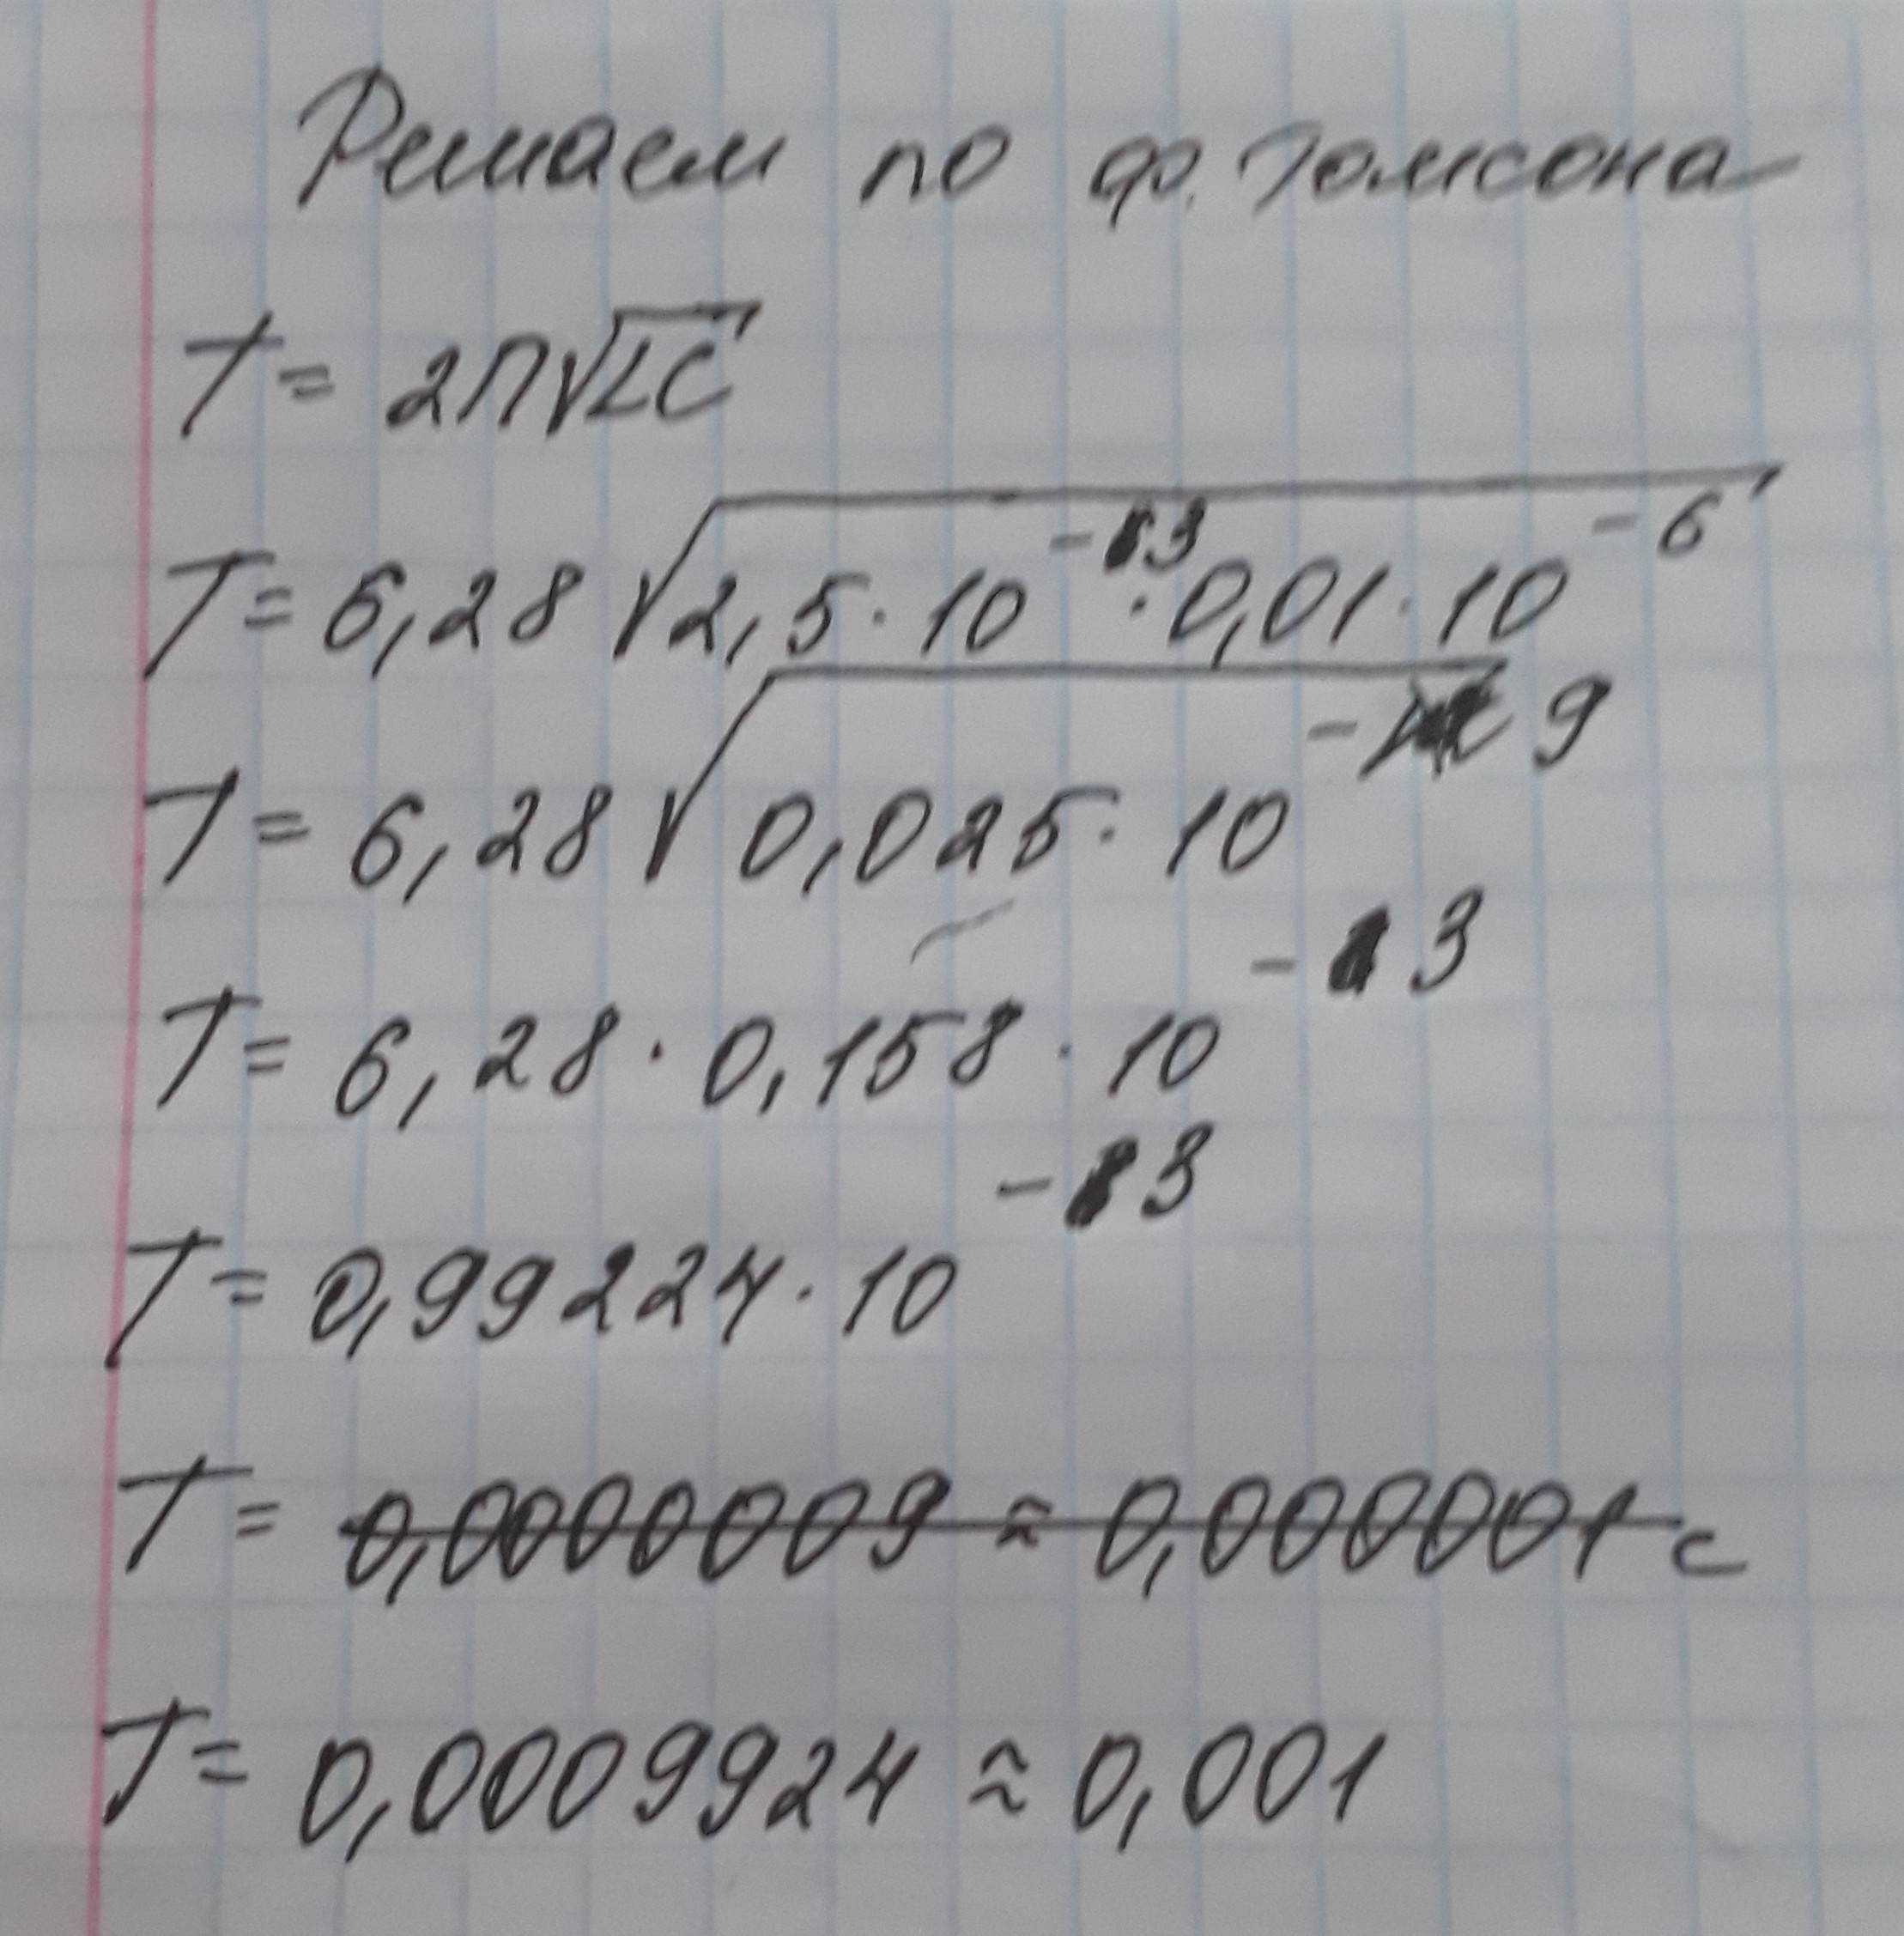 Решаем по ф. Томсона
T = 2П√LC
T = 6,28 √2,5 · 10⁻³ · 0,01 · 10⁻⁶
T = 6,28 √0,025 · 10⁻⁹
T = 6,28 · 0,158 · 10⁻³
T = 0,99224 · 10⁻³
T = 0,0000009 ≈ 0,000001 с
T = 0,0009924 ≈ 0,001